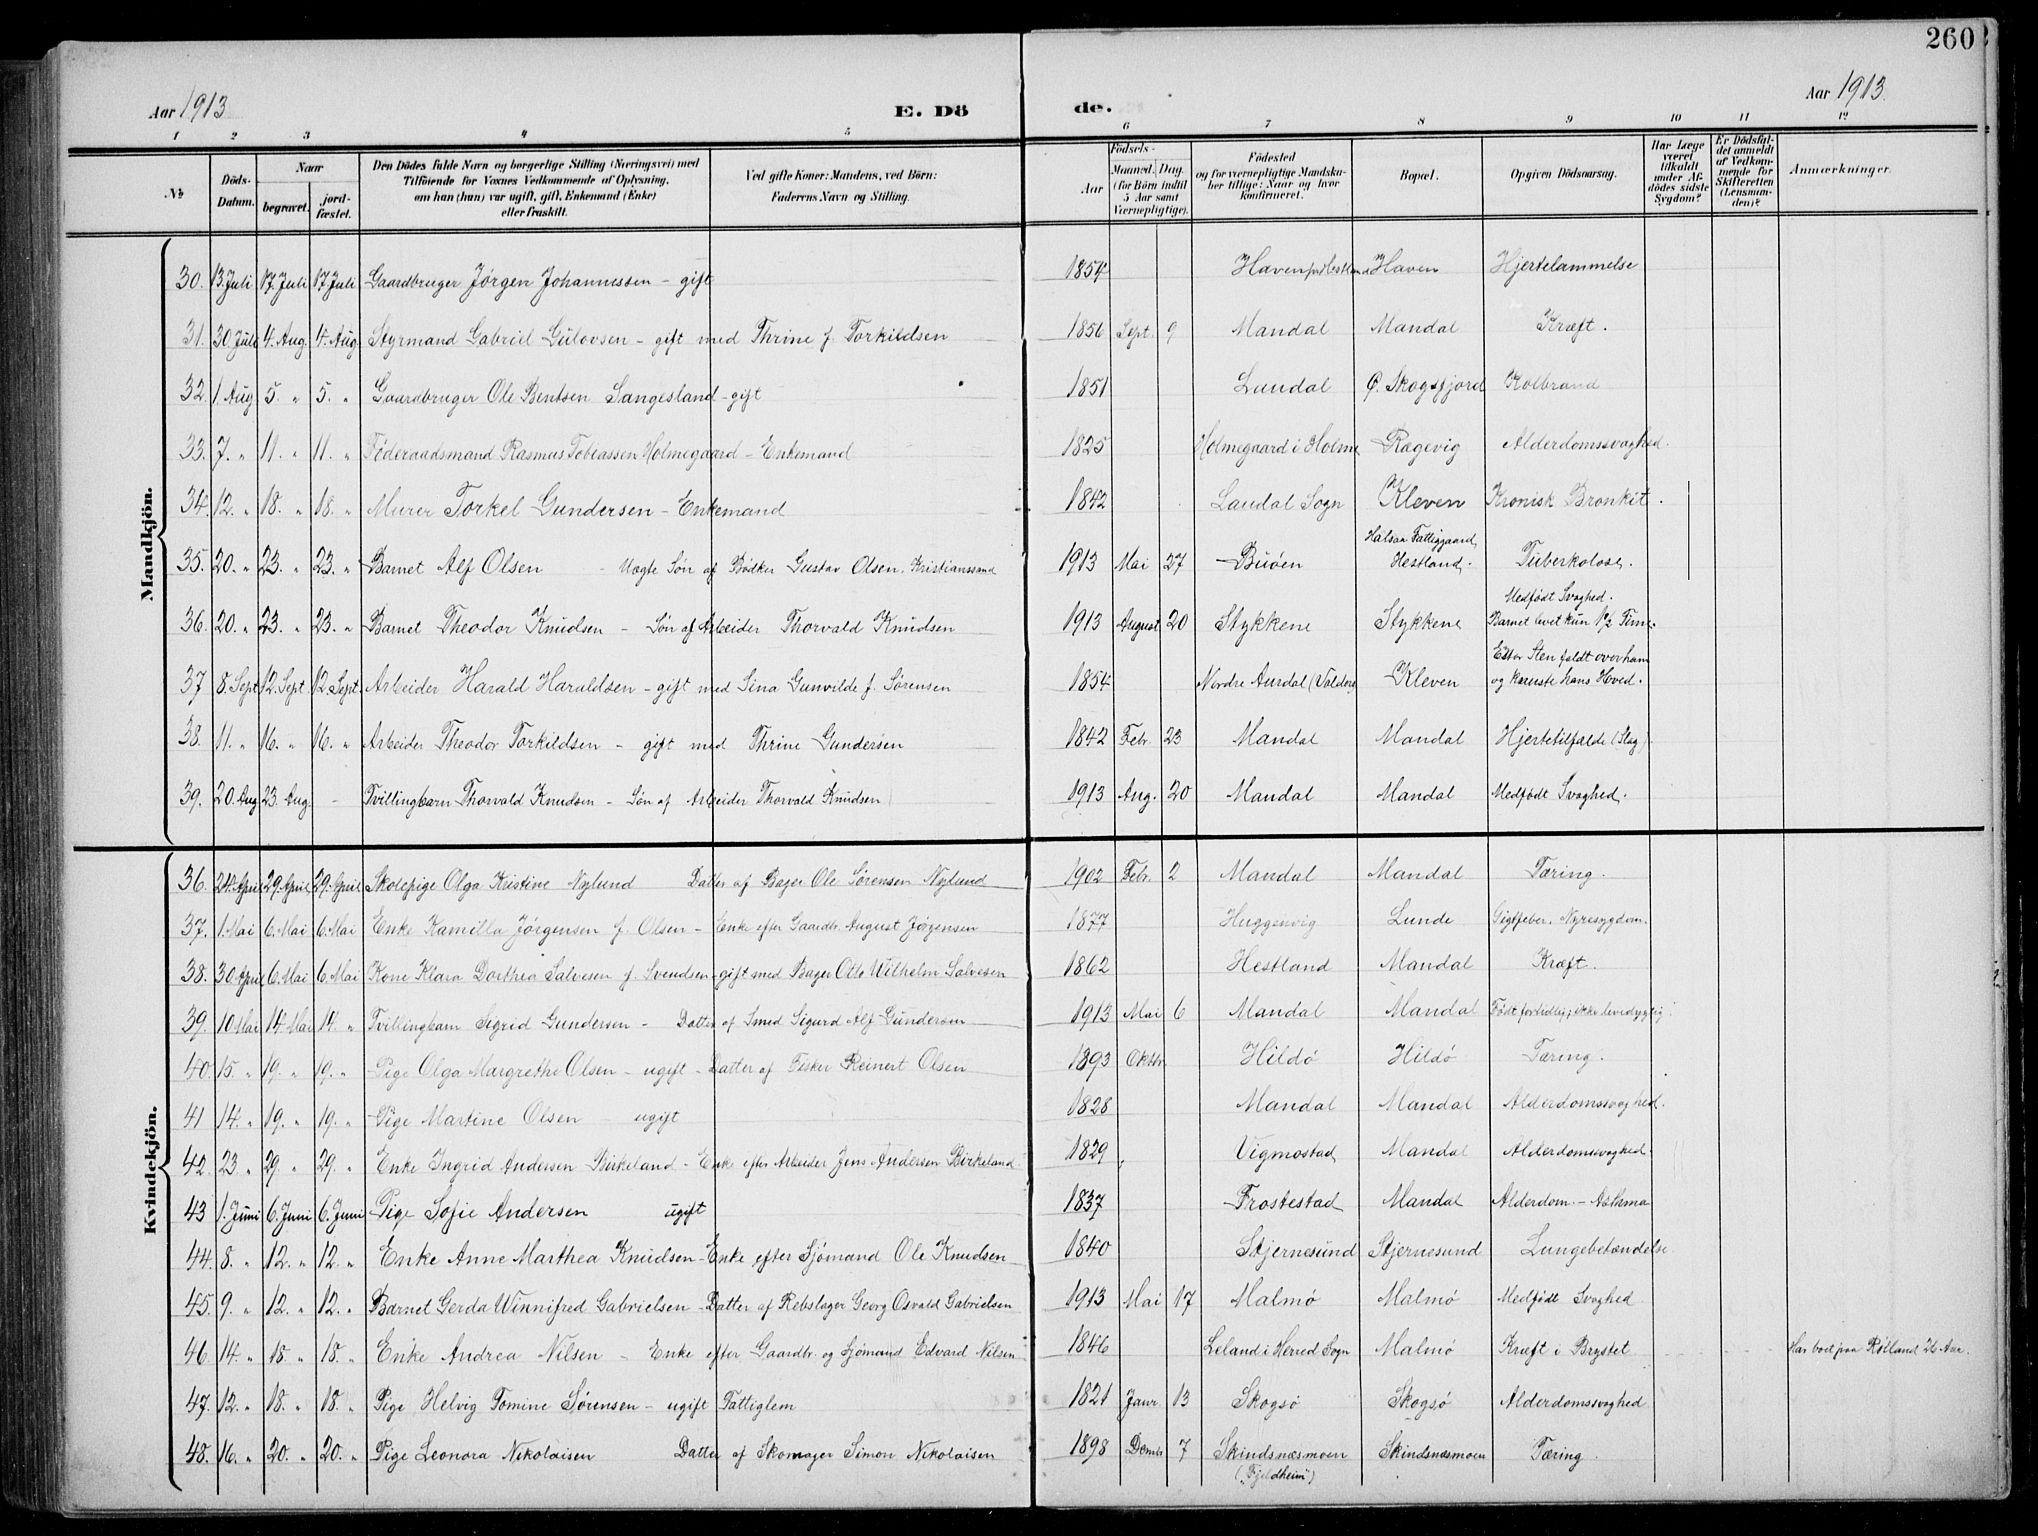 260
Aar 1913
E. Dö de.
Aar 1913.
1 2 3 4 5 6 7 8 9 10 11 12
No
Döds-Datum.
Naar
begravet.
jord-fæstet.
Den Dödes fulde Navn og borgerlige Stilling (Næringsvei) med
Tilföiende for Voxnes Vedkommende af Oplysning,
om han (hun) var ugift, gift, Enkemand (Enke)
eller fraskilt.
Ved gifte Koner: Mandens, ved Börn:
Faderens Navn og Stilling.
Födsels-
Aar
Maaned. Dag.
(for Börn indtil
5 Aar samt
Værnepligtige).
Födested
og for værnepligtige Mandska-
ber tillige: Naar og hvor
konfirmeret.
Bopæl.
Opgiven Dödsaarsag.
Har Læge
været
tilkaldt
under Af-
dödes sidste
Sygdom?
Er Dödsfal-
det anmeldt
af Vedkom-
mende for
Skifteretten
(Lensman-
den)?
Anmærkninger.
Mandkjön.
30. 13. Juli 17. Juli 17 Juli Gaardbruger Jørgen Johannessen - gift 1854 Haven Haven Hjertelammelse
31. 30 Juli 4. Aug. 4. Aug. Styrmand Gabriel Gulovsen - gift med Thrine f. Torkildsen 1856 Sept. 9 Mandal Mandal Kræft.
32. 1. Aug 5. " 5. " Gaardbruger Ole Bentsen Sangesland - gift 1851 Lundal Ø. Skogsfjord Kolbrand
33. 7. " 11. " 11. " Føderaadsmand Rasmus Tobiassen Holmegaard - Enkemand 1825 Holmegaard i Holme Rægevig Alderdomssvaghed.
34. 12. " 18. " 18. " Murer Torkel Gundersen - Enkemand 1842 Laudal Sogn Kleven Kronisk Bronkit.
35. 20. " 23. " 23. " Barnet Alf Olsen - Uægte Søn af Bødker Gustav Olsen. Kristianssand 1913 Mai 27 Buøen Halsaa Fattiggaard, Hestland. Tuberkolose.
36. 20. " 23. " 23. " Barnet Theodor Knudsen - Søn af Arbeider Thorvald Knudsen 1913 August 20 Stykkene Stykkene Medfødt Svaghed. Barnet levet kun 1½ Time.
37 8. Sept 12. Sept. 12. Sept. Arbeider Harald Haraldsen - gift med Sina Gunvilde f. Sørensen 1854 Nordre Aurdal (Valders) Kleven En stor Sten faldt over ham og knuste hans Hoved.
38. 11. " 16. " 16. " Arbeider Theodor Torkildsen - gift med Thrine Gundersen 1842 Febr. 23 Mandal Mandal Hjertetilfælde (Slag).
39. 20. Aug 23. Aug. - Tvillingbarn Thorvald Knudsen - Søn af Arbeider Thorvald Knudsen 1913 Aug. 20 Mandal Mandal Medfødt Svaghed.
Kvindekjön.
36. 24. April 29. April 29. April Skolepige Olga Kristine Nylund Datter af Bager Ole Sørensen Nylund 1902 Febr. 2 Mandal Mandal Tæring.
37. 1. Mai 6. Mai 6. Mai Enke Kamilla Jørgensen f. Olsen - Enke efter Gaardbr. August Jørgensen 1877 Huggenvig Lunde Gigtfeber. Nyresygdom.
38. 30. April 6. Mai 6. Mai Kone Klara Dorthea Salvesen f. Svendsen - gift med Bager Otto Wilhelm Salvesen 1862 Hestland Mandal Kræft.
39. 10 Mai 14. Mai 14. " Tvillingbarn Sigrid Gundersen - Datter af Smed Sigurd Alf Gundersen 1913 Mai 6 Mandal Mandal Født fortidlig, ikke levedygtig.
40. 15. " 19. " 19. " Pige Olga Margrethe Olsen - ugift - Datter af Fisker Reinert Olsen 1893 Oktbr. Hildø Hildø Tæring.
41 14. " 19. " 19. " Pige Martine Olsen - ugift 1828 Mandal Mandal Alderdomssvaghed.
42. 23. " 29. " 29. " Enke Ingrid Andersen Birkeland - Enke efter Arbeider Jens Andersen Birkeland 1829 Vigmostad Mandal Alderdomssvaghed.
43 1. Juni 6. Juni 6. Juni Pige Sofie Andersen ugift 1837 Frostestad Mandal Alderdom - Asthma
44. 8. " 12. " 12. " Enke Anne Marthea Knudsen - Enke efter Sjømand Ole Knudsen 1840 Stjernesund Stjernesund Lungebetændelse
45. 9. " 12. " 12. " Barnet Gerda Winnifred Gabrielsen - Datter af Rebslager Georg Osvald Gabrielsen 1913 Mai 17 Malmø Malmø Medfødt Svaghed
46. 14. " 18. " 18. " Enke Andrea Nilsen - Enke efter Gaardbr. og Sjømand Edvard Nilsen 1846 Leland i Herred Sogn Malmø Kræft i Brystet Har boet paa Risland 26 Aar.
47. 12. " 18. " 18. " Pige Helvig Tomine Sørensen - ugift Fattiglem 1821 Janr 13 Skogsø Skogsø Alderdomssvaghed
48. 16. " 20. " 20. " Pige Leonora Nikolaisen Datter af Skomager Simon Nikolaisen 1898 Dembr 7 Skindsnæsmoen Skindsnæsmoen Tæring.
("Fjeldheim")